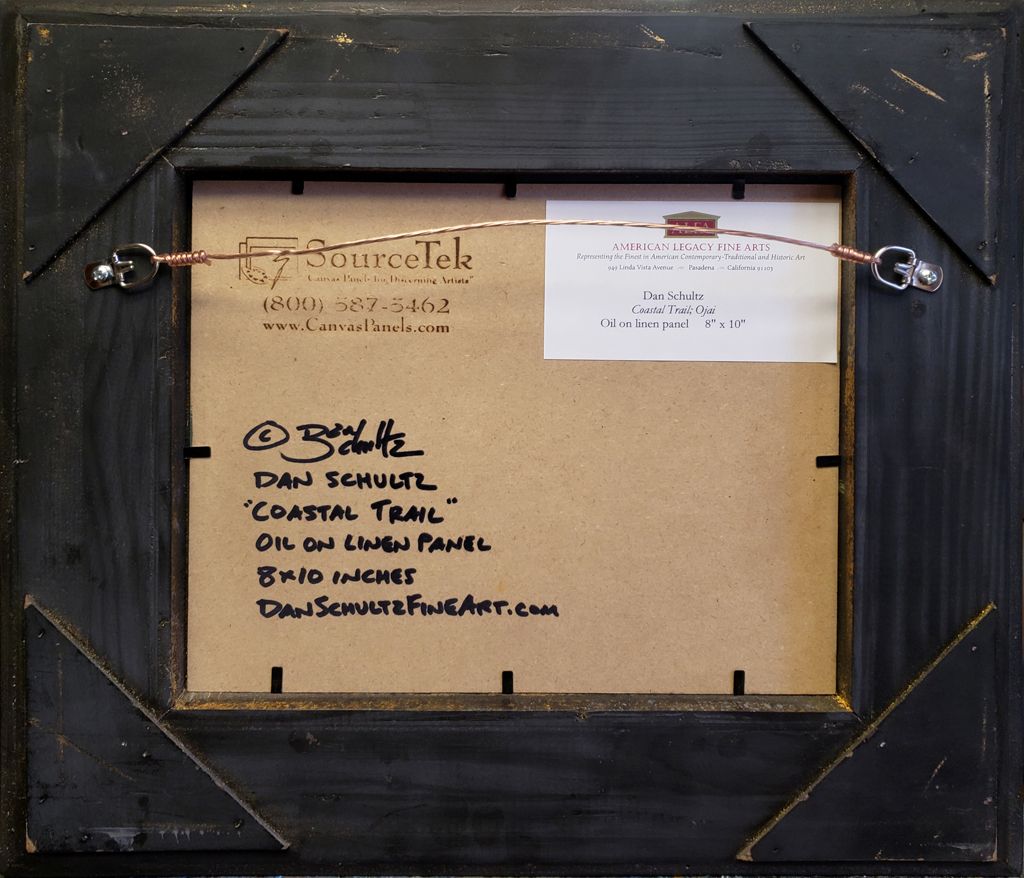 SourceTek
Canvas Panels for Discerning Artists
(800) 587-5462
www.CanvasPanels.com
ALFA
AMERICAN LEGACY FINE ARTS
Representing the Finest in American Contemporary-Traditional and Historic Art
949 Linda Vista Avenue — Pasadena — California 91103
Dan Schultz
Coastal Trail; Ojai
Oil on linen panel 8" x 10"
© Dan Schultz
DAN SCHULTZ
"COASTAL TRAIL"
OIL ON LINEN PANEL
8x10 INCHES
DANSCHULTZFINEART.com